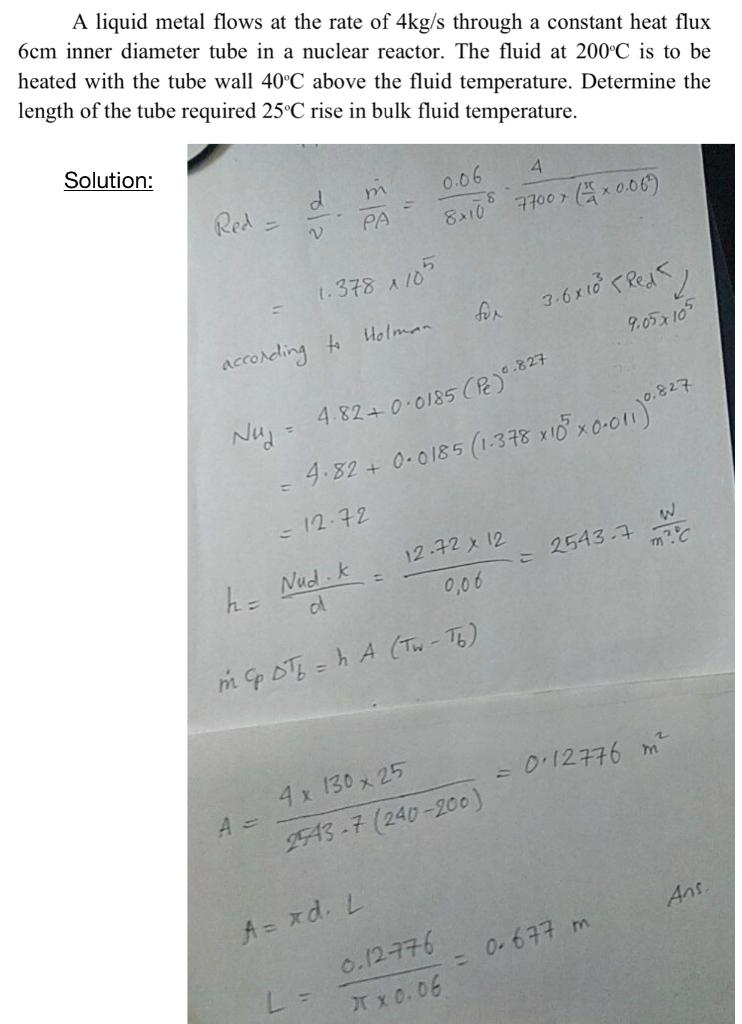 A liquid metal flows at the rate of 4kg/s through a constant heat flux
6cm inner diameter tube in a nuclear reactor. The fluid at 200°C is to be
heated with the tube wall 40°C above the fluid temperature. Determine the
length of the tube required 25°C rise in bulk fluid temperature.
Solution:
Red = d/ν · ṁ/PA = 0.06/8x10^-8 · 4/7700 x (π/4 x 0.06²)
= 1.378 x 10^5
according to Holman for 3.6x10^3 < Red < 9.05x10^5
Nud = 4.82 + 0.0185 (Pe)^0.827
= 4.82 + 0.0185 (1.378 x10^5 x 0.011)^0.827
= 12.72
h = Nud.k/d = 12.72 x 12/0,06 = 2543.7 W/m².°C
ṁ Cp ΔTb = h A (Tw - Tb)
A = 4 x 130 x 25/2543.7 (240-200) = 0.12776 m²
A = πd. L
L = 0.12776/π x 0.06 = 0.677 m Ans.